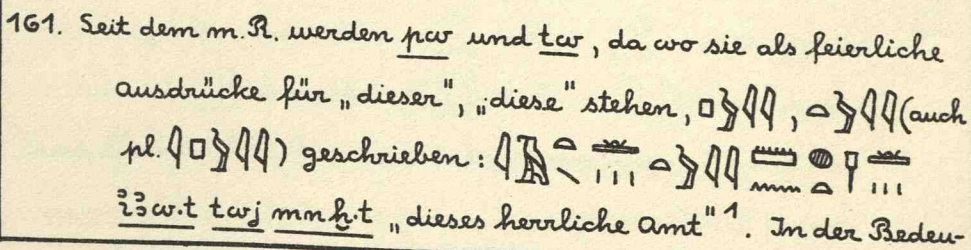 161. Seit dem m. R. werden pw und tw, da wo sie als feierliche
Ausdrücke für „dieser", „diese" stehen, 𓊪𓅱𓇋𓇋, 𓏏𓅱𓇋𓇋 (auch
pl. 𓇋𓊪𓅱𓇋𓇋) geschrieben: 𓇋𓀗𓏏𓏯𓏛𓏥 𓏏𓅱𓇋𓇋 𓏠𓈖𓐍𓏏𓍋𓏛𓏥
iꜣw.t twj mnḫ.t „dieses herrliche Amt"¹. In der Bedeu-